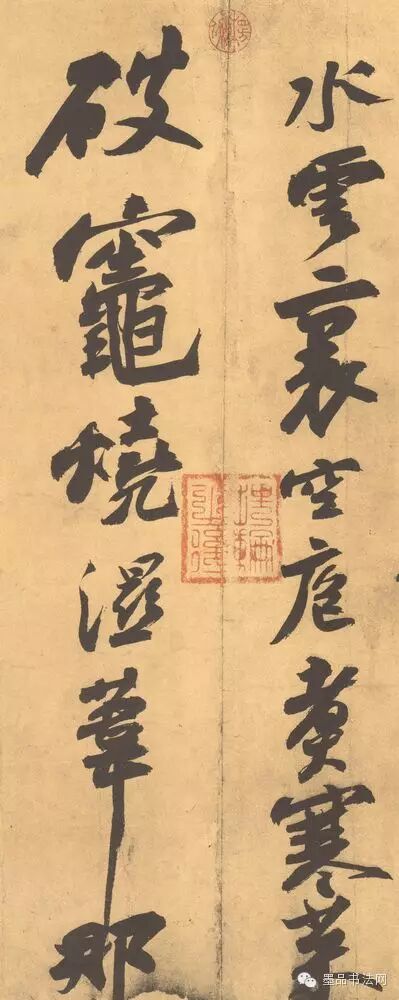 水雲裏空庖煮寒菜
破竈燒濕葦那
墨品书法网